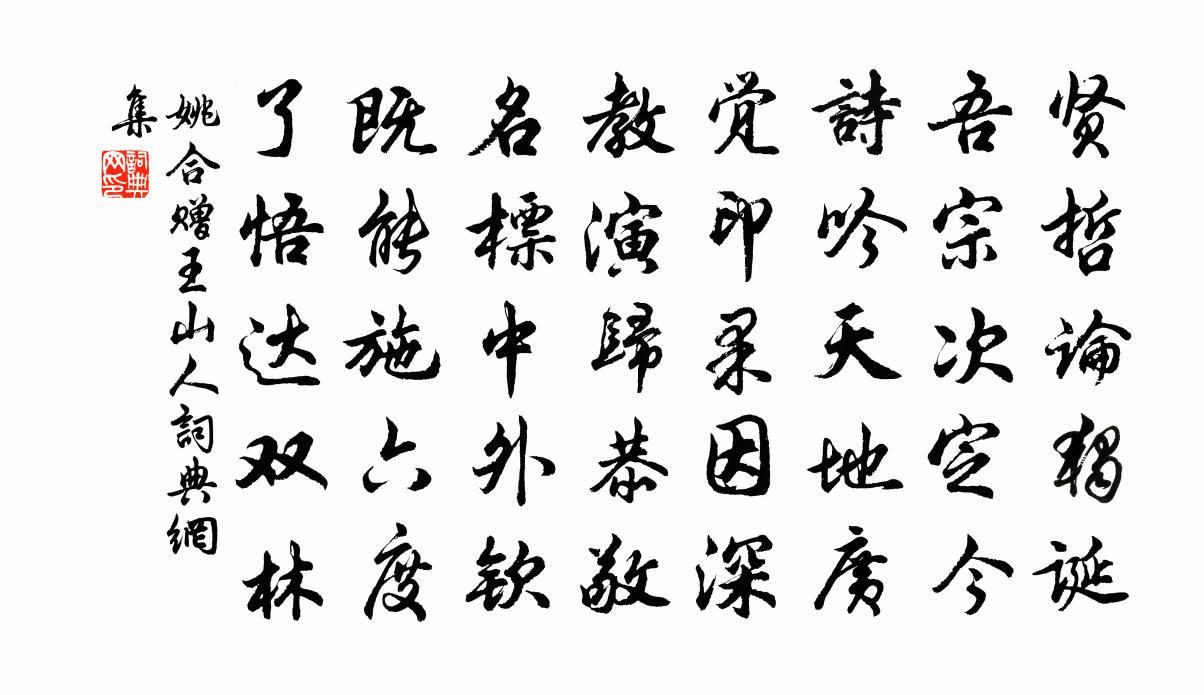 贤哲論独诞
吾宗次定今
詩吟天地廣
觉印果因深
教演歸恭敬
名標中外钦
既能施六度
了悟达双林
姚合赠王山人詞典網
集
詞典
网印